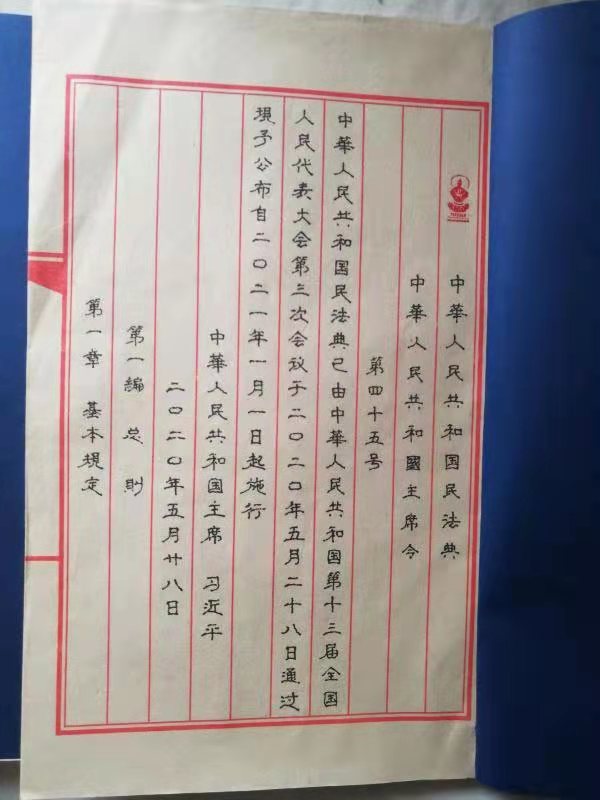 中華人民共和国民法典
中華人民共和國主席令
第四十五号
中華人民共和国民法典已由中華人民共和国第十三届全国
人民代表大会第三次会议于二〇二〇年五月二十八日通过
現予公布自二〇二一年一月一日起施行
中華人民共和国主席 习近平
二〇二〇年五月廿八日
第一編 总則
第一章 基本規定